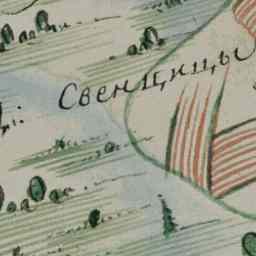 Свенцицы